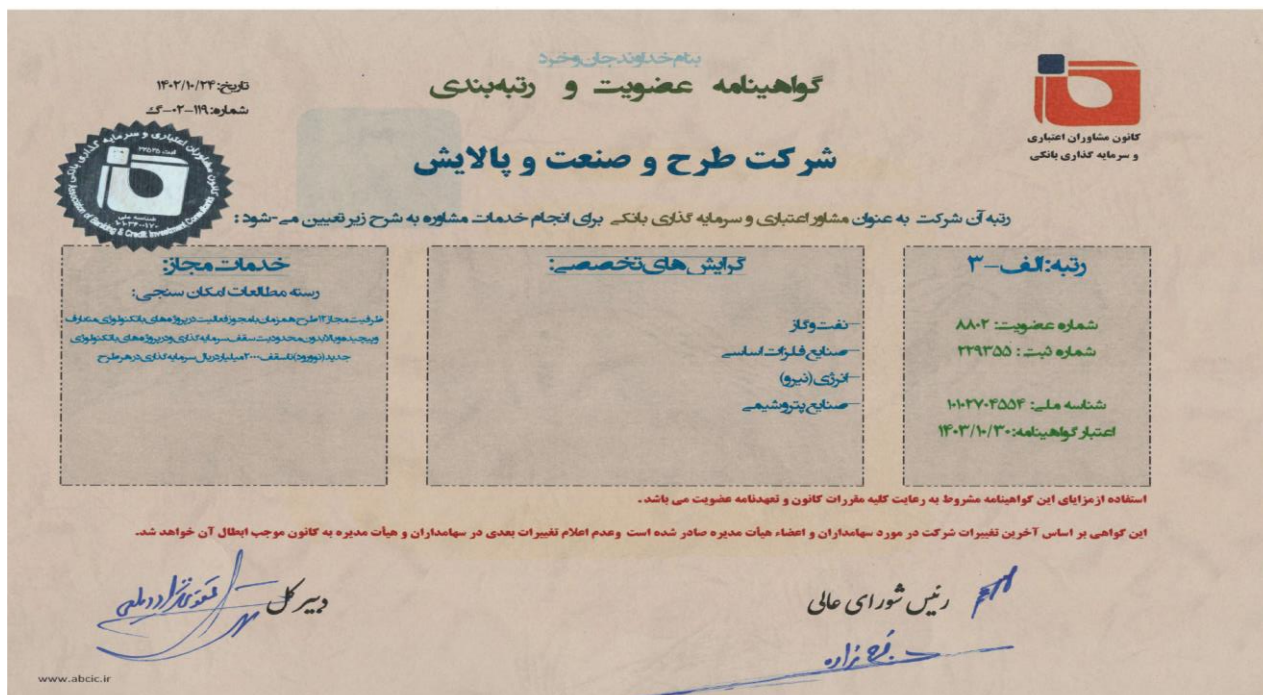 بنام خداوند جان و خرد
گواهینامه عضویت و رتبه‌بندی
تاریخ: ۱۴۰۲/۱۰/۲۴
شماره: ۱۱۹-۰۲-گ
کانون مشاوران اعتباری
و سرمایه گذاری بانکی
کانون مشاوران اعتباری و سرمایه گذاری بانکی
ثبت ۲۲۵۲۵
شناسه ملی
Association of Banking & Credit Investment Consultants
شرکت طرح و صنعت و پالایش
رتبه آن شرکت به عنوان مشاور اعتباری و سرمایه گذاری بانکی برای انجام خدمات مشاوره به شرح زیر تعیین می-شود:
رتبه: الف-۳
شماره عضویت: ۸۸۰۲
شماره ثبت: ۲۲۹۳۵۵
شناسه ملی: ۱۰۱۰۲۷۰۴۵۵۴
اعتبار گواهینامه: ۱۴۰۳/۱۰/۳۰
گرایش های تخصصی:
-نفت و گاز
-صنایع فلزات اساسی
-انرژی (نیرو)
-صنایع پتروشیمی
خدمات مجاز:
رسته مطالعات امکان سنجی:
ظرفیت مجاز ۱۲ طرح همزمان با مجوز فعالیت در پروژه های با تکنولوژی متعارف
و پیچیده و بالا بدون محدودیت سقف سرمایه گذاری و در پروژه های با تکنولوژی
جدید (نوورود) تا سقف ۲۰۰۰ میلیارد ریال سرمایه گذاری در هر طرح
استفاده از مزایای این گواهینامه مشروط به رعایت کلیه مقررات کانون و تعهدنامه عضویت می باشد.
این گواهی بر اساس آخرین تغییرات شرکت در مورد سهامداران و اعضاء هیأت مدیره صادر شده است وعدم اعلام تغییرات بعدی در سهامداران و هیأت مدیره به کانون موجب ابطال آن خواهد شد.
رئیس شورای عالی
دبیر کل
www.abcic.ir